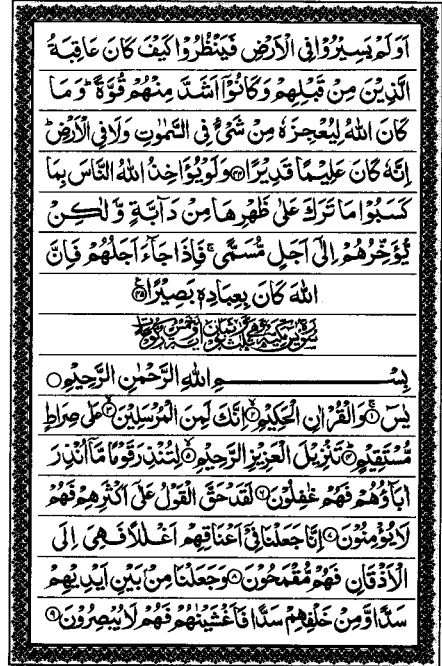 اَوَلَمْ يَسِيْرُوْا فِي الْاَرْضِ فَيَنْظُرُوْا كَيْفَ كَانَ عَاقِبَةُ
الَّذِيْنَ مِنْ قَبْلِهِمْ وَكَانُوْٓا اَشَدَّ مِنْهُمْ قُوَّةً ؕ وَمَا
كَانَ اللّٰهُ لِيُعْجِزَهٗ مِنْ شَيْءٍ فِي السَّمٰوٰتِ وَلَا فِي الْاَرْضِ ؕ
اِنَّهٗ كَانَ عَلِيْمًا قَدِيْرًا ۝۴۴ وَلَوْ يُؤَاخِذُ اللّٰهُ النَّاسَ بِمَا
كَسَبُوْا مَا تَرَكَ عَلٰى ظَهْرِهَا مِنْ دَآبَّةٍ وَّلٰكِنْ
يُّؤَخِّرُهُمْ اِلٰٓى اَجَلٍ مُّسَمًّى ۚ فَاِذَا جَآءَ اَجَلُهُمْ فَاِنَّ
اللّٰهَ كَانَ بِعِبَادِهٖ بَصِيْرًا ۝۴۵
بِسْمِ اللّٰهِ الرَّحْمٰنِ الرَّحِيْمِ ۝
يٰسٓ ۝۱ وَالْقُرْاٰنِ الْحَكِيْمِ ۝۲ اِنَّكَ لَمِنَ الْمُرْسَلِيْنَ ۝۳ عَلٰى صِرَاطٍ
مُّسْتَقِيْمٍ ۝۴ تَنْزِيْلَ الْعَزِيْزِ الرَّحِيْمِ ۝۵ لِتُنْذِرَ قَوْمًا مَّآ اُنْذِرَ
اٰبَآؤُهُمْ فَهُمْ غٰفِلُوْنَ ۝۶ لَقَدْ حَقَّ الْقَوْلُ عَلٰٓى اَكْثَرِهِمْ فَهُمْ
لَا يُؤْمِنُوْنَ ۝۷ اِنَّا جَعَلْنَا فِيْٓ اَعْنَاقِهِمْ اَغْلٰلًا فَهِيَ اِلَى
الْاَذْقَانِ فَهُمْ مُّقْمَحُوْنَ ۝۸ وَجَعَلْنَا مِنْۢ بَيْنِ اَيْدِيْهِمْ
سَدًّا وَّمِنْ خَلْفِهِمْ سَدًّا فَاَغْشَيْنٰهُمْ فَهُمْ لَا يُبْصِرُوْنَ ۝۹